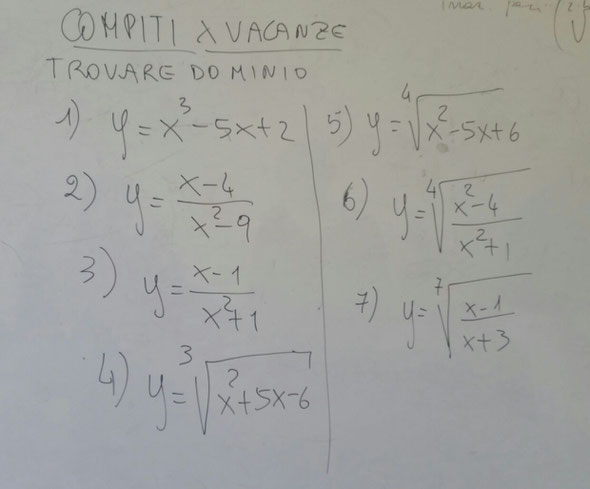 COMPITI X VACANZE
TROVARE DOMINIO
1) y = x³ - 5x + 2
2) y = (x-4)/(x²-9)
3) y = (x-1)/(x²+1)
4) y = ∛(x²+5x-6)
5) y = ∜(x²-5x+6)
6) y = ∜((x²-4)/(x²+1))
7) y = ⁷√((x-1)/(x+3))